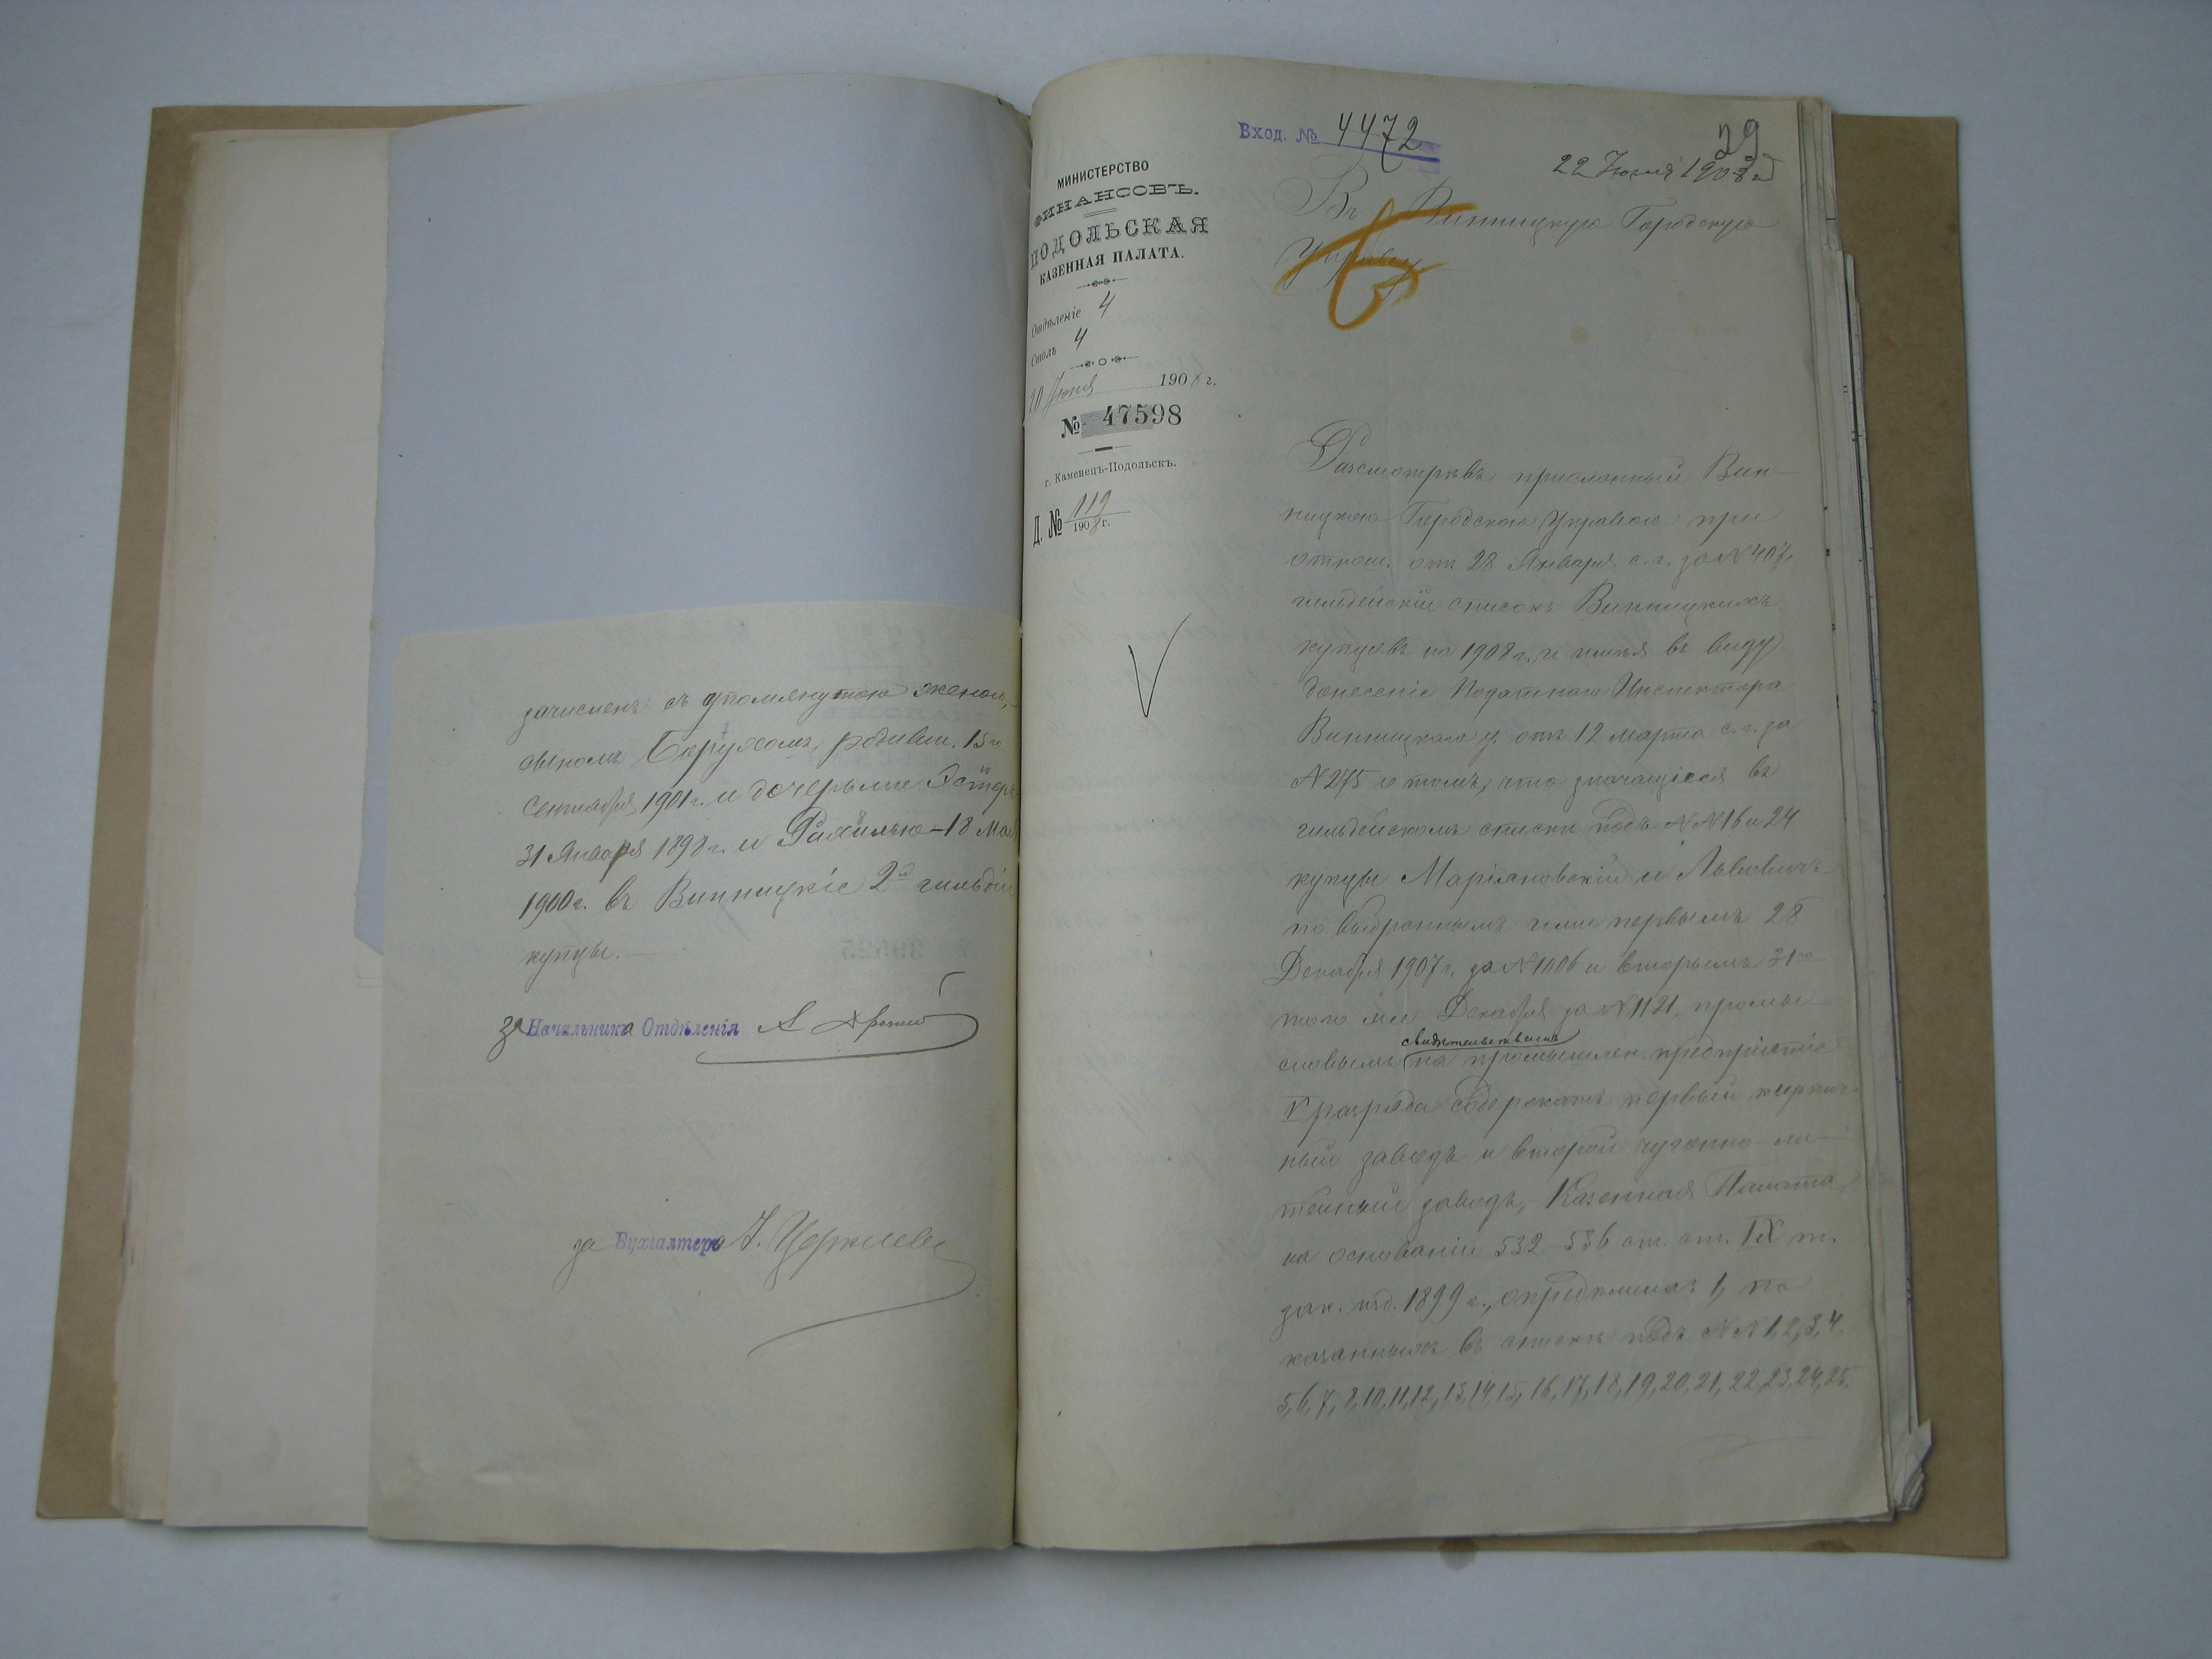 зачисленъ съ упомянутою женою,
сыномъ Борухомъ, родивш. 15го
Сентября 1901 г. и дочерьми Эстер
31 Января 1898 г. и Рахилью - 18 Мая
1900 г. въ Винницкіе 2й гильдіи
купцы.
за Начальника Отдѣленія
за Бухгалтера
Вход. № 4472
29
22 Іюня 1908 г
МИНИСТЕРСТВО
ФИНАНСОВЪ.
ПОДОЛЬСКАЯ
КАЗЕННАЯ ПАЛАТА.
Отдѣленіе 4
Столъ 4
20 Іюня 1908 г.
№ 47598
г. Каменецъ-Подольскъ.
Д. № 119
1908 г.
Въ Винницкую Городскую
Управу
Разсмотрѣвъ присланный Вин-
ницкою Городскою Управою при
отнош. отъ 28 Января с.г. за № 407,
гильдейскій списокъ Винницкихъ
купцовъ на 1908 г. и имѣя въ виду
донесеніе Податнаго Инспектора
Винницкаго у. отъ 12 Марта с.г. за
№ 275 о томъ, что значащіеся въ
гильдейскомъ списки подъ №№ 16 и 24
купцы Маріяновскій и Львовичъ
по выбраннымъ ими первымъ 28
Декабря 1907 г. за № 1006 и вторымъ 31го
того же Декабря за № 1121, промы-
свидѣтельствамъ
словымъ на промышлен. предпріятіе
V разряда содержатъ первый кирпич-
ный заводъ и второй чугунно-ли-
тейный заводъ, Казенная Палата,
на основаніи 532-536 ст. ст. IX т.
зак. изд. 1899 г., опредѣлила: 1, по
казанныхъ въ списки подъ №№ 1, 2, 3, 4,
5, 6, 7, 8, 10, 11, 12, 13, 14, 15, 16, 17, 18, 19, 20, 21, 22, 23, 24, 25,